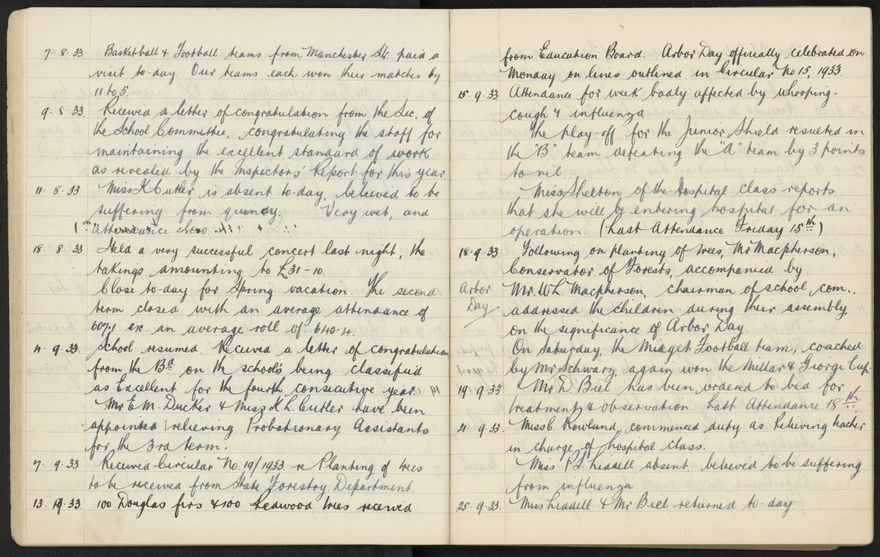 7. 8. 33 Basketball & Football teams from Manchester St. paid a
visit to-day. Our teams each won their matches by
11 to 5.
9. 8. 33 Received a letter of congratulation from the Sec. of
the School Committee, congratulating the staff for
maintaining the excellent standard of work
as revealed by the Inspectors' Report for this year.
11. 8. 33 Miss K Cutler is absent to-day, believed to be
suffering from quincy. Very wet, and
attendance low
18. 8. 33 Held a very successful concert last night, the
takings amounting to £31-10.
Close to-day for Spring vacation. The second
term closed with an average attendance of
607.1 ex. an average roll of 640.4.
4. 9. 33 School resumed. Received a letter of congratulation
from the Bd. on the school's being classified
as Excellent for the fourth consecutive year.
Mr E. M. Ducker & Miss K. L. Cutler have been
appointed relieving Probationary Assistants
for the 3rd term.
7. 9. 33 Received Circular No. 19/1933 re Planting of trees
to be received from State Forestry Department.
13. 9. 33 100 Douglas firs & 100 Redwood trees received
from Education Board. Arbor Day officially celebrated on
Monday on lines outlined in Circular No 15, 1933.
15. 9. 33 Attendance for week badly affected by whooping-
cough & influenza
The play-off for the Junior Shield resulted in
the "B" team defeating the "A" team by 3 points
to nil.
Miss Shelton, of the Hospital class reports
that she will be entering hospital for an
operation. (Last Attendance Friday 15th)
18. 9. 33 Following on planting of trees, Mr Macpherson,
Conservator of Forests, accompanied by
Arbor Mr. W. L. Macpherson, chairman of school com.
Day addressed the children during their assembly,
on the significance of Arbor Day.
On Saturday, the Midget Football team, coached
by Mr Schwarz again won the Millar & George Cup.
19. 9. 33 Mr. D. Biel has been ordered to bed for
treatment & observation. Last Attendance 18th.
21. 9. 33 Miss C. Rowland, commenced duty as Relieving teacher
in charge of hospital class.
Miss Liddell absent, believed to be suffering
from influenza.
25. 9. 33. Miss Liddell & Mr Biel returned to-day